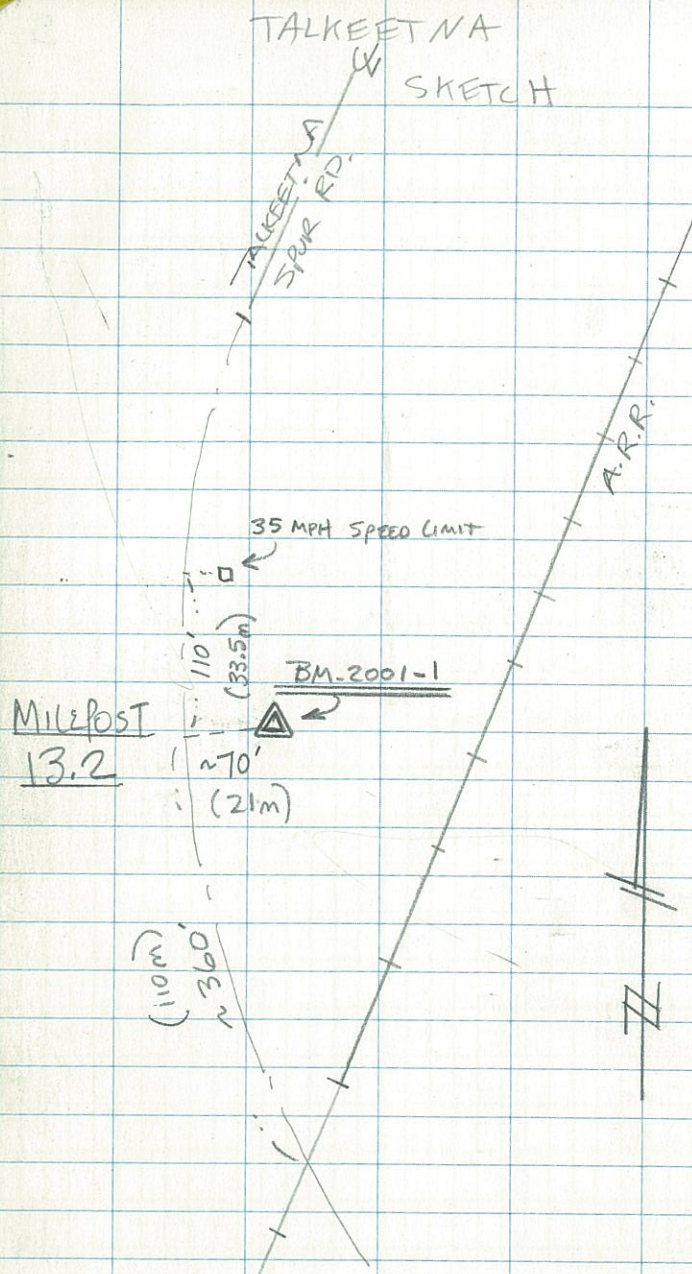 TALKEETNA
SKETCH
TALKEETNA
SPUR RD.
A.R.R.
35 MPH SPEED LIMIT
110'
(33.5m)
BM-2001-1
MILEPOST
13.2
~70'
(21m)
~360'
(110m)
N